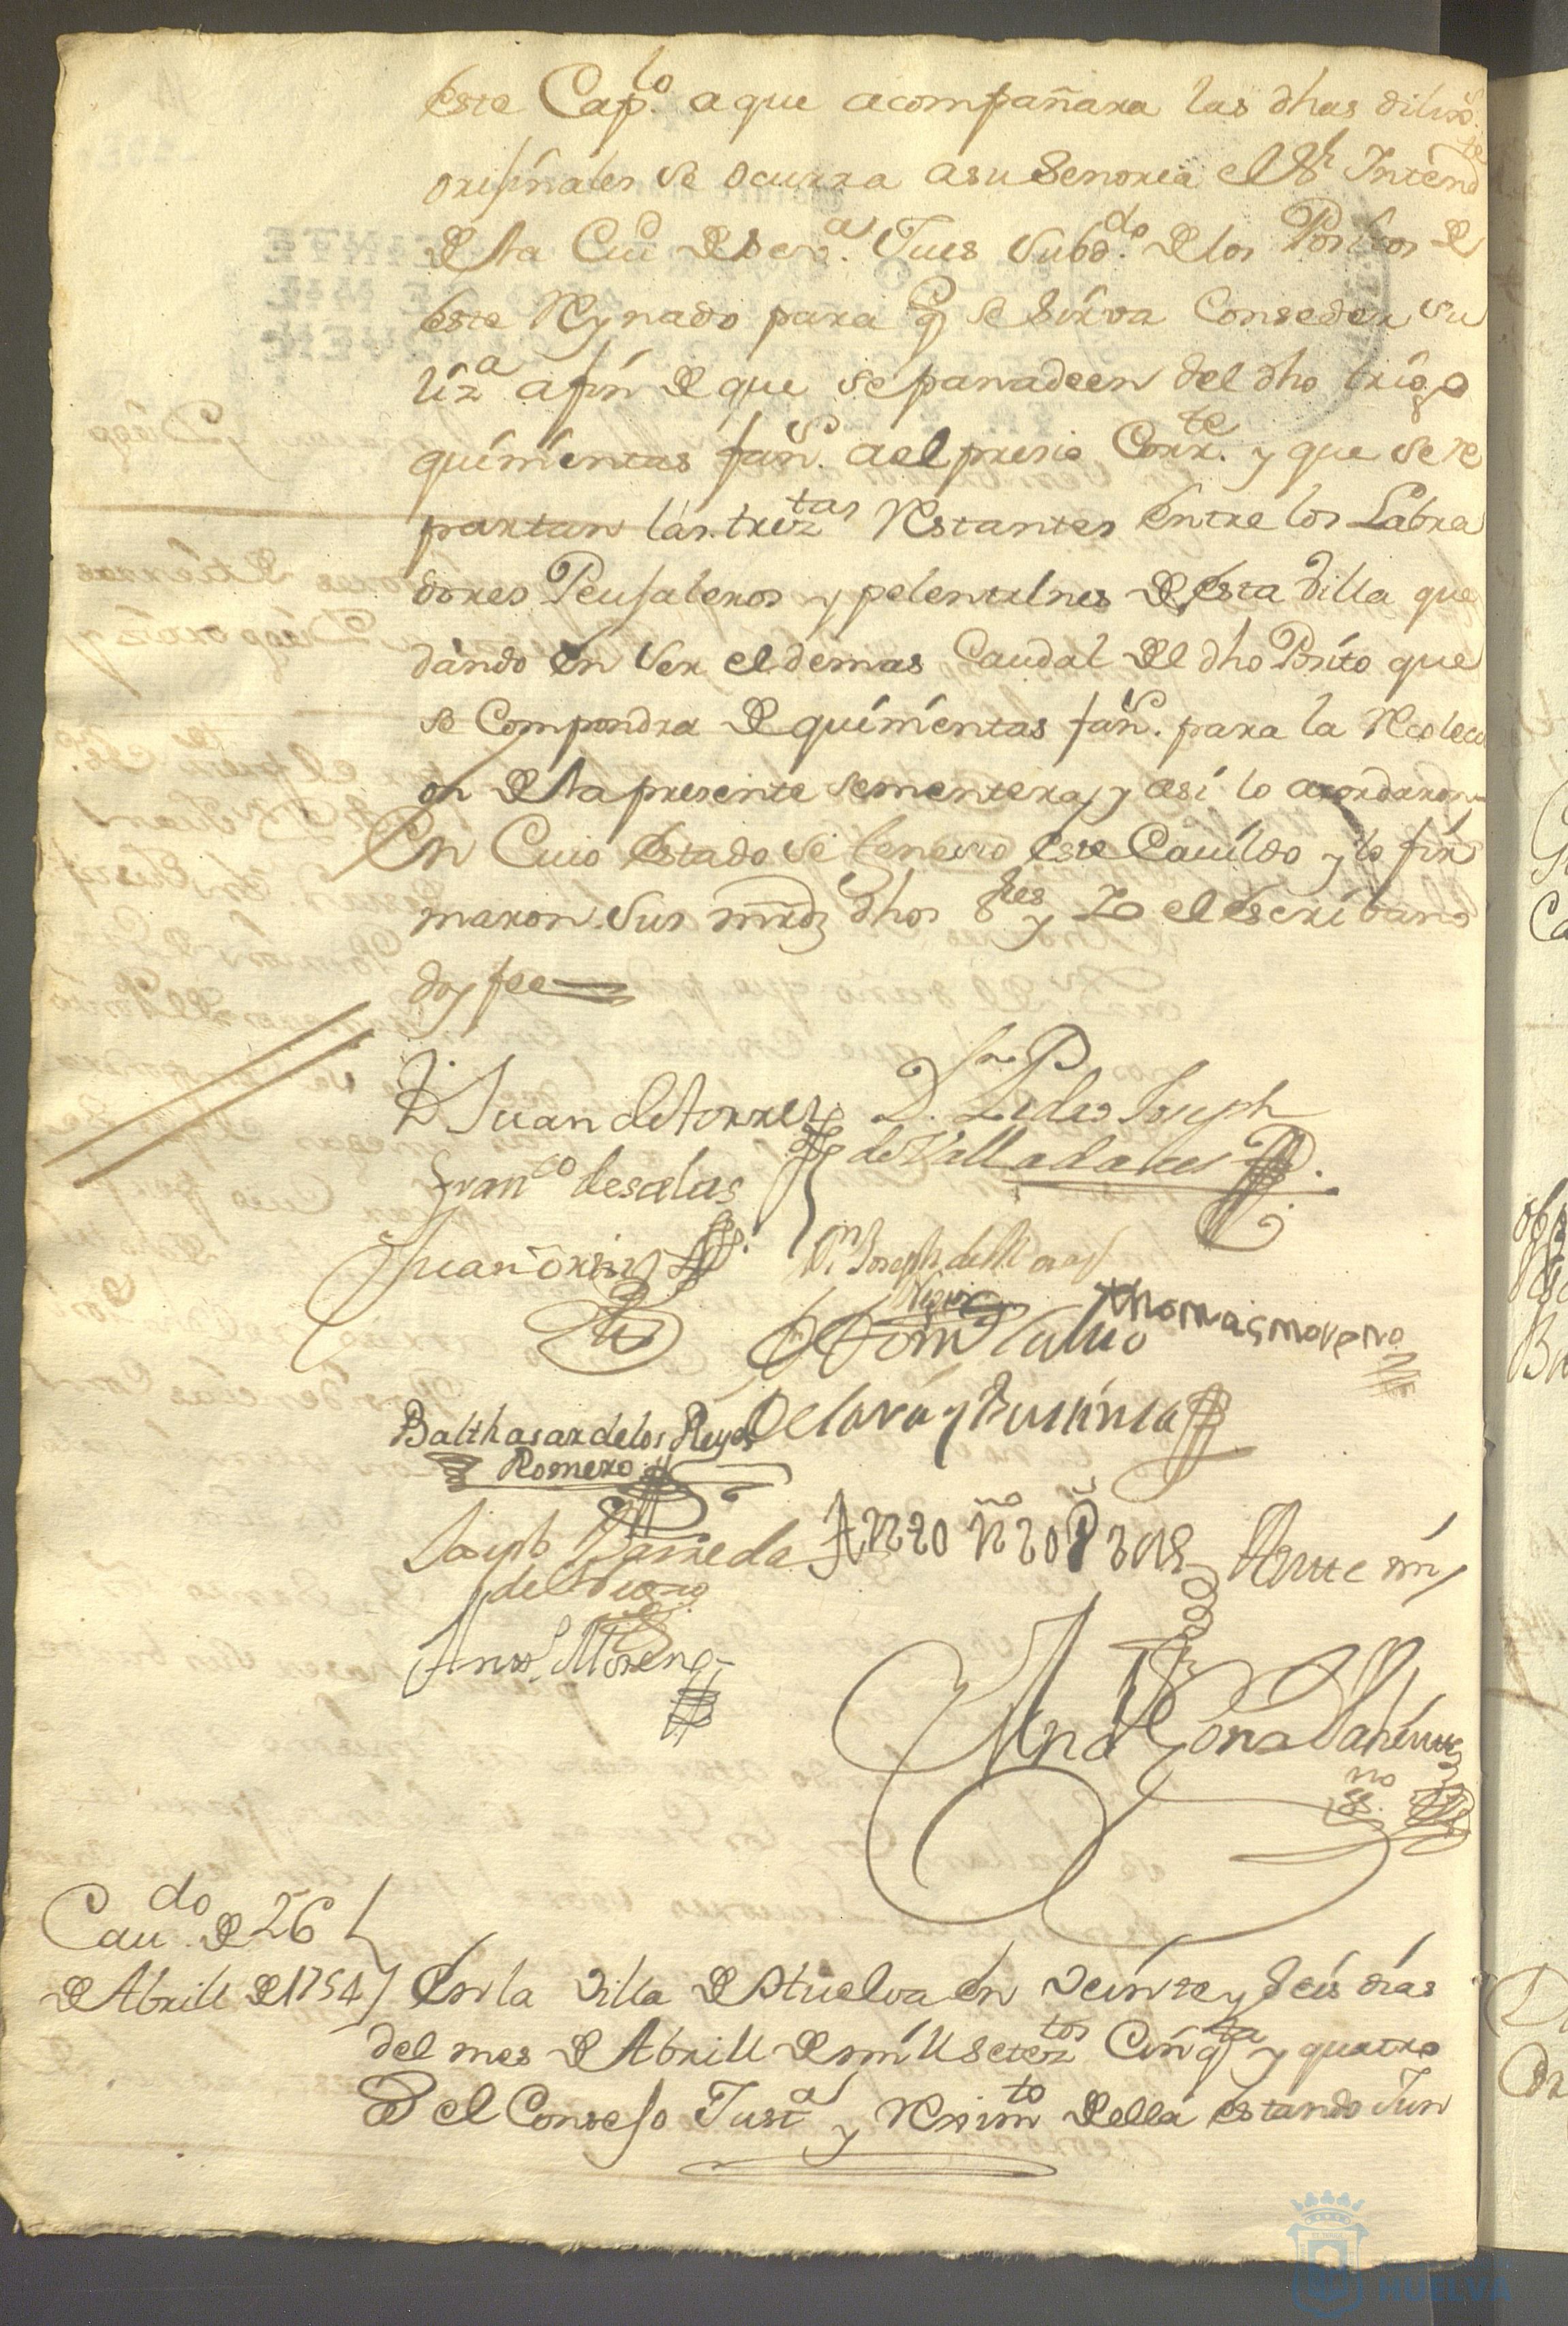 este Cap.lo a que acompañara las dhas dilix.s
orijinales se ocurra a su Senoria el Sr Intend.te
de la Ciud de Sev.a Jues Subd.do de los Positos de
este Reynado para q se sirva Conseder su
liz.a a fin de que se panadeen del dho trigo
quinientas fan.s a el presio Corr.te y que se re
partan las trez.tas Restantes entre los Labra
dores Peujaleros y pelentrines de esta Villa que
dando en ser el demas Caudal del dho Posito que
se Compondra de quinientas fan.s para la Recolecc
on de la presente sementera, y asi lo acordaron
En Cuio estado se feneció este Cavildo y lo fir
maron sus mrds dhos Sres y Yo el escribano
doy fee
D. Juan de torres
D. Pedro Joseph
de Valladares
Fran.co de salas
Juan Orsis
Joseph de
thomas moreno
Calvo
Balthasar de los Reyes
Romero
Joseph Barreda
Antte mi
Ant.o Moreno
SS.no
Cau.do de 26
de Abrill de 1754
En la Villa de Huelva en veinte y seis dias
del mes de Abrill de mill setez.tos Cinq.ta y quatro
el Consejo Just.a y Reximto della estando Jun
HUELVA